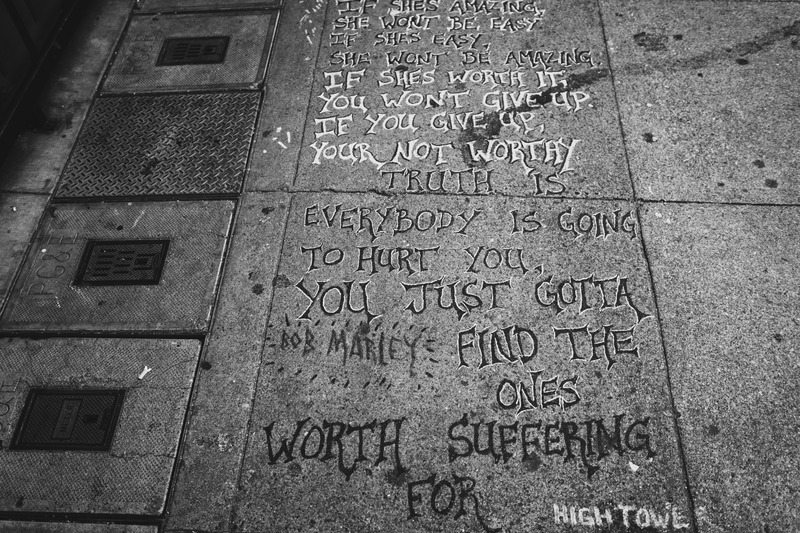 IF SHES AMAZING,
SHE WONT BE EASY
IF SHES EASY,
SHE WONT BE AMAZING.
IF SHES WORTH IT,
YOU WONT GIVE UP.
IF YOU GIVE UP,
YOUR NOT WORTHY
TRUTH IS...
EVERYBODY IS GOING
TO HURT YOU,
YOU JUST GOTTA
FIND THE
ONES
WORTH SUFFERING
FOR
BOB MARLEY
HIGHTOWER
PG&E